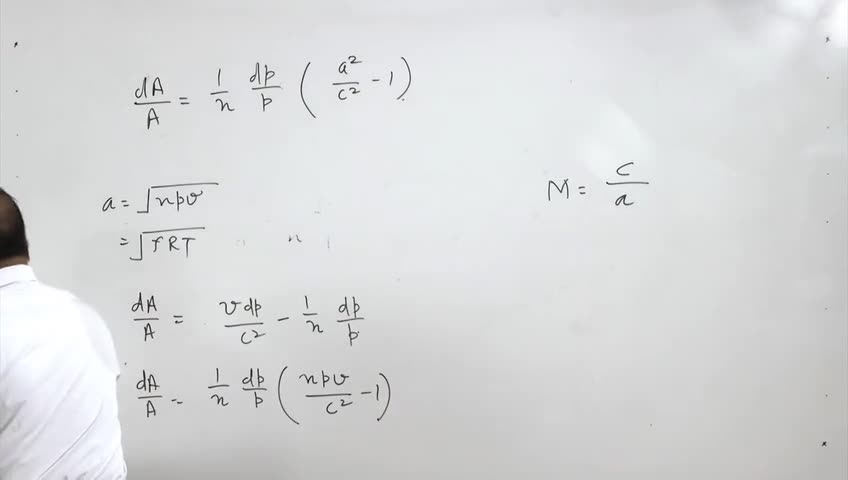 dA/A = 1/n dp/p ( a²/c² - 1 )
a = √npv
M = c/a
= √γRT
n
dA/A = vdp/c² - 1/n dp/p
dA/A - 1/n dp/p ( npv/c² - 1 )